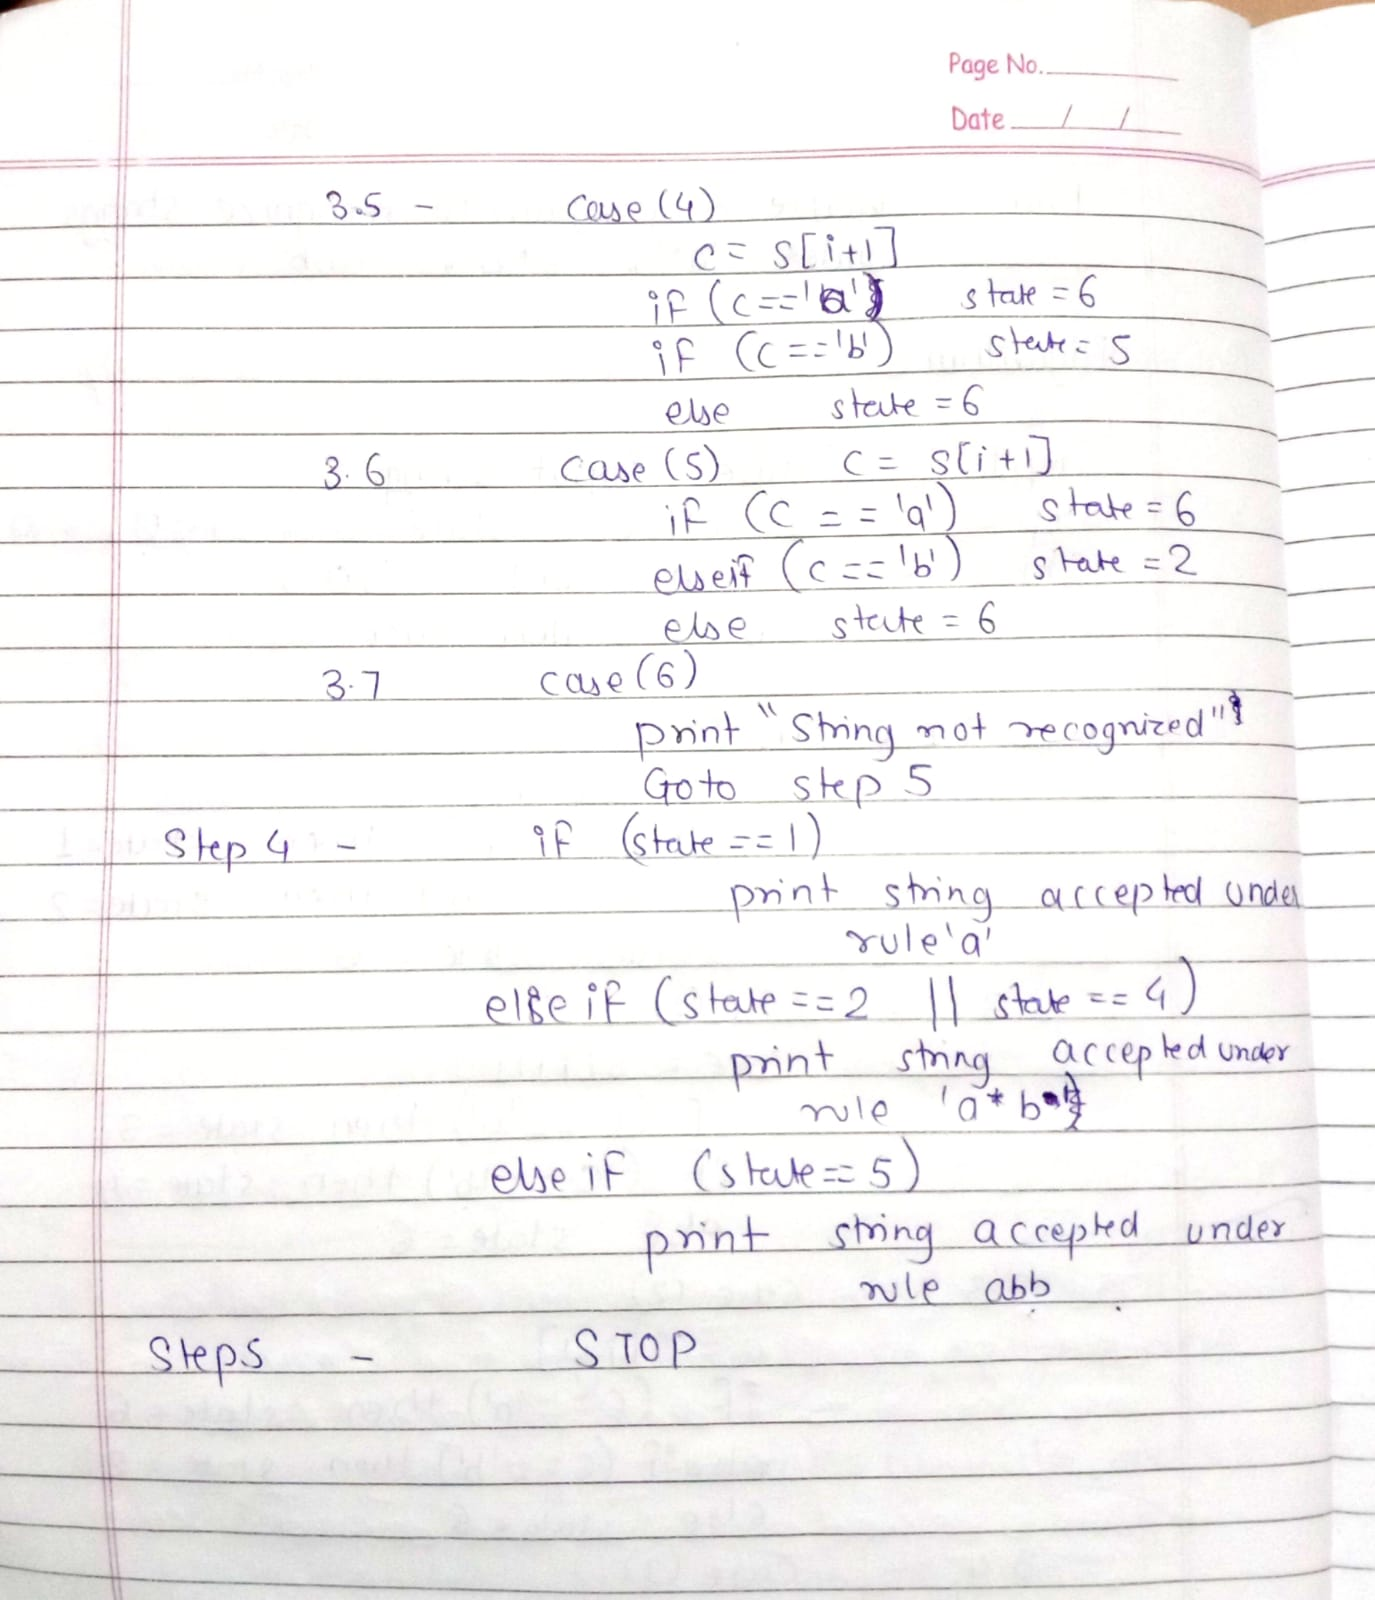 Page No.
Date / /
3.5 - case (4)
c = s[i+1]
if (c=='a') state = 6
if (c=='b') state = 5
else state = 6
3.6 case (5) c = s[i+1]
if (c == 'a') state = 6
elseif (c == 'b') state = 2
else state = 6
3.7 case (6)
print "String not recognized"
Goto step 5
Step 4 - if (state == 1)
print string accepted under
rule 'a'
else if (state == 2 || state == 4)
print string accepted under
rule 'a*b
else if (state == 5)
print string accepted under
rule abb
Step5 - STOP